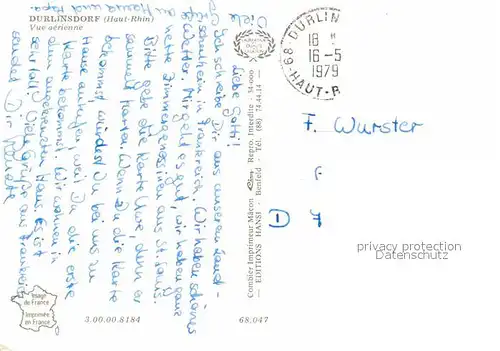 DURLINSDORF (Haut-Rhin)
Vue aérienne
Viele
an Hanna und Papa.
Liebe Gotti!
Ich schreibe Dir aus unserem Land-
schulheim in Frankreich. Wir haben schönes
Wetter. Mir geht es gut, wir haben ganz
nette Zimmergenossinen aus St.
Bitte gebe die Karte Uwe, denn er
sammelt Karten. Wenn Du die Karte
bekommst, würdest Du bei uns zu
Hause anrufen, weil Du die erste
Karte bekommst. Wir wohnen in
dem angekreuzten Haus. Es ist
sehr toll! Viele Grüße aus Frankreich
sendet Dir
Combier Imprimeur Mâcon Cim Repro. Interdite - 34-000
EDITIONS HANSI - Benfeld - Tél. (88) 74.44.14
68 DURLIN
18 H
16-5
1979
HAUT-R
F. Wurster
D 7
privacy protection
Datenschutz
Image
de France
Imprimée
en France
3.00.00.8184
68.047